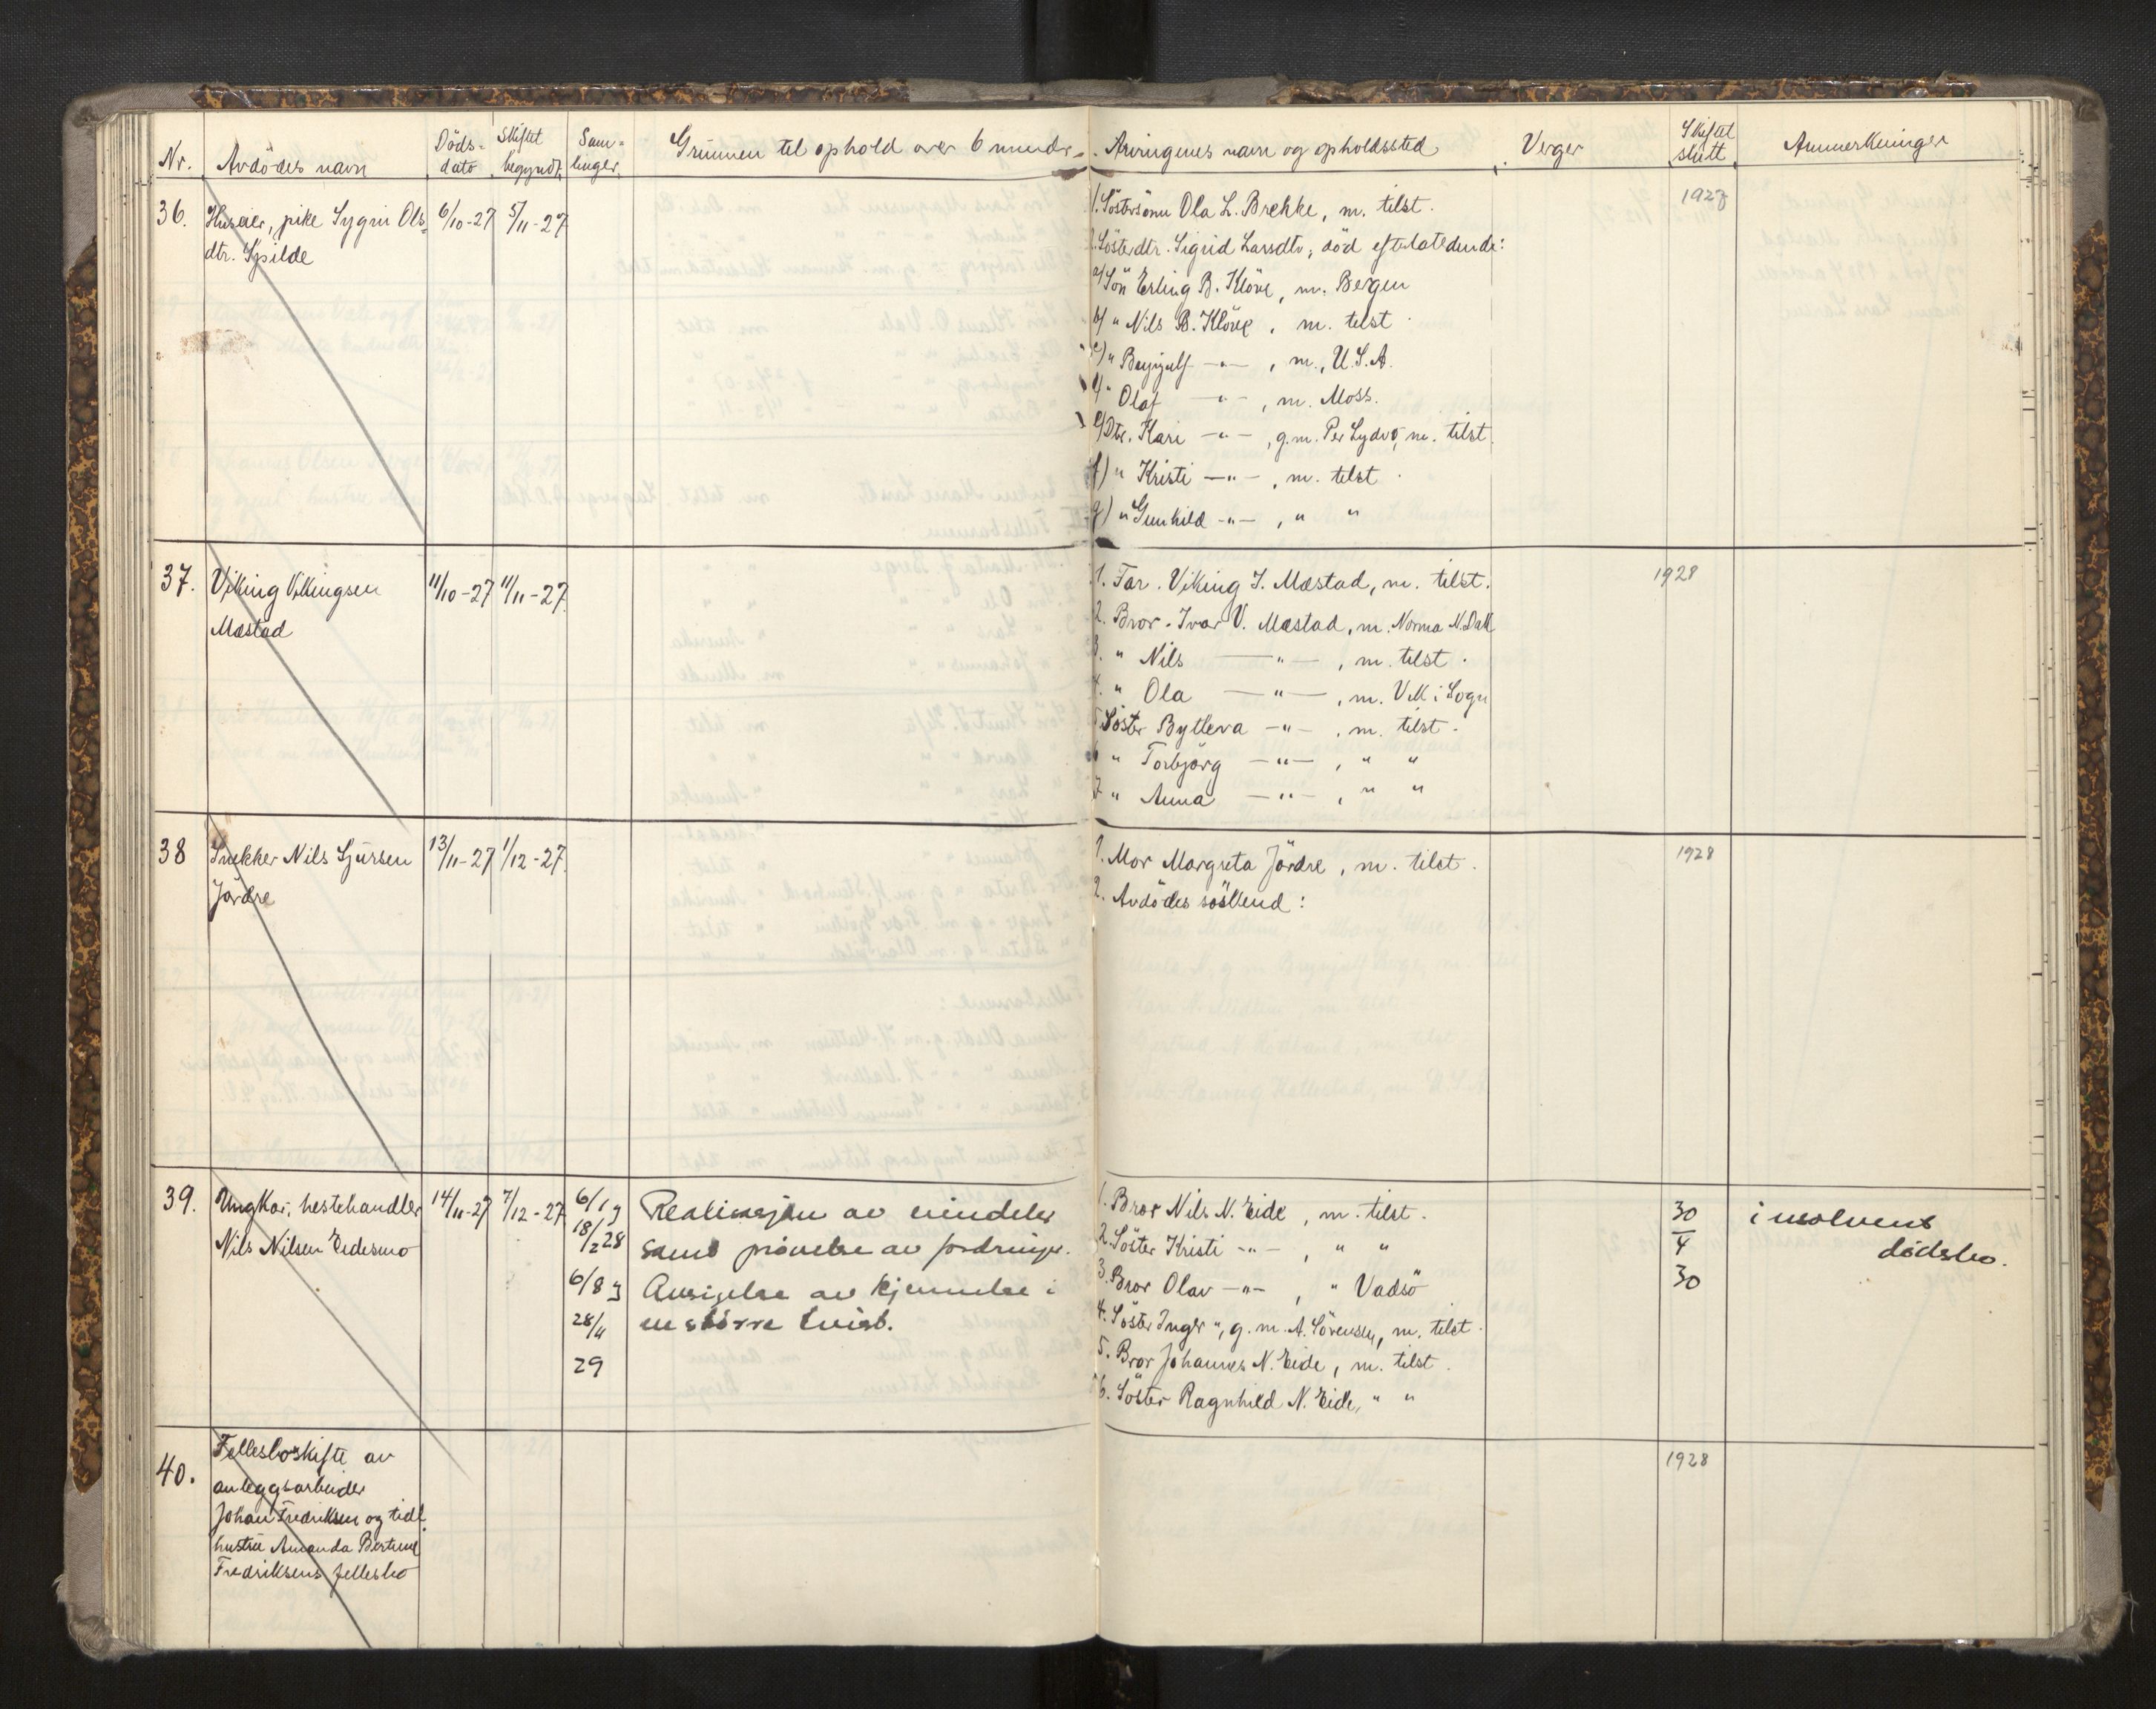 Nr. Avdödes navn Döds- dato Skiftet begyndt Sam- linger Grunnen til ophold over 6 mndr. Arvingenes navn og opholdssted Verger Skiftet slutt Anmerkninger
36. Huseier, pike Sygni Ols- 6/10-27 5/11-27
dtr. Gjilde
1. Söstersönn Ola L. Brekke, m. tilst. 1927
2. Sösterdtr. Sigrid Larsdtr, död efterlatende:
a) Sön Erling B. Klöve, m. Bergen
b) " Nils B. Klöve, m. tilst
c) " Brynjulf —"—, m. U.S.A.
d) " Olaf —"—, m. Moss.
e) Dtr. Kari —"—, g.m. Per Lydvo, m. tilst.
f) " Kristi —"—, m. tilst.
g) " Gunhild —"—, " "
37. Viking Vikingsen 11/10-27 11/11-27
Mæstad
1. Far. Viking I. Mæstad, m. tilst. 1928
2. Bror. Ivar V. Mæstad, m. Norma N.Dak
3. " Nils —"—, m. tilst.
4. " Ola —"—, m. Vik i Sogn
5. Söster Bytleva —"—, m. tilst.
6 " Torbjörg —"—, " "
7 " Anna —"—, " "
38 Snekker Nils Sjursen 13/11-27 1/12-27
Jördre
1. Mor Margreta Jördre, m. tilst. 1928
2. Avdödes söskend:
39. Ungkar, hestehandler 14/11-27 7/12-27
Nils Nilsen Eidesmo
6/1 g
18/2 28
6/8 g
28/11
29
Realisasjon av eiendeler
samt prövelse av fordringer.
Avsigelse av kjennelse i
en större tvist.
1. Bror Nils N. Eide, m. tilst.
2. Söster Kristi —"—, " "
3. Bror Olav —"—, " Vadsö
4. Söster Inger ", g.m. A. Sörensen, m. tilst.
5. Bror Johannes N. Eide, m. tilst.
6. Söster Ragnhild N. Eide, " "
30
4
30
insolvent
dödsbo.
40. Fellesboskifte av 1928
anleggsarbeider
Johan Fredriksen og tidl.
hustru Amanda Bertine
Fredriksens fellesbo